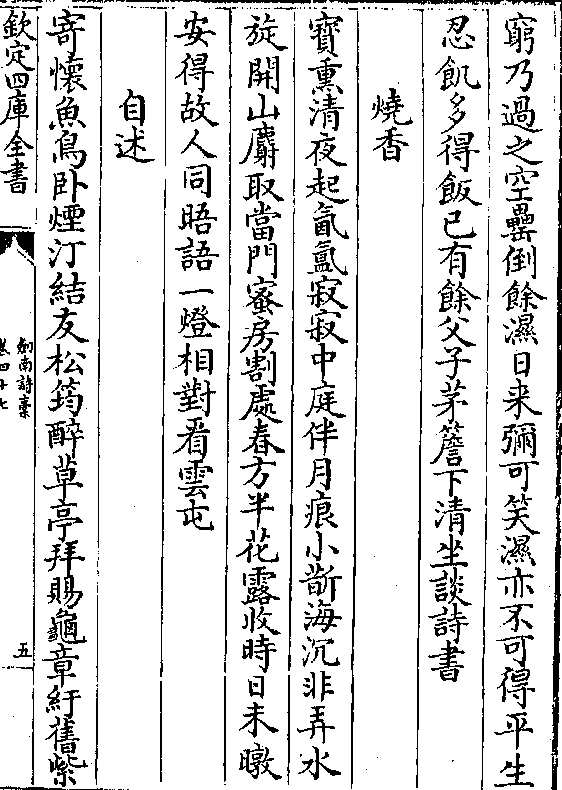 窮乃過之空罍倒餘濕日来彌可笑濕亦不可得平生
忍飢多得飯已有餘父子茅簷下清坐談詩書
燒香
寶熏清夜起氤氳寂寂中庭伴月痕小斮海沉非弄水
旋開山麝取當門蜜房割處春方半花露收時日未暾
安得故人同晤語一燈相對看雲屯
自述
寄懷魚鳥卧煙汀結友松筠醉草亭拜賜龜章紆舊紫
欽定四庫全書
劍南詩稾
卷四十七
五